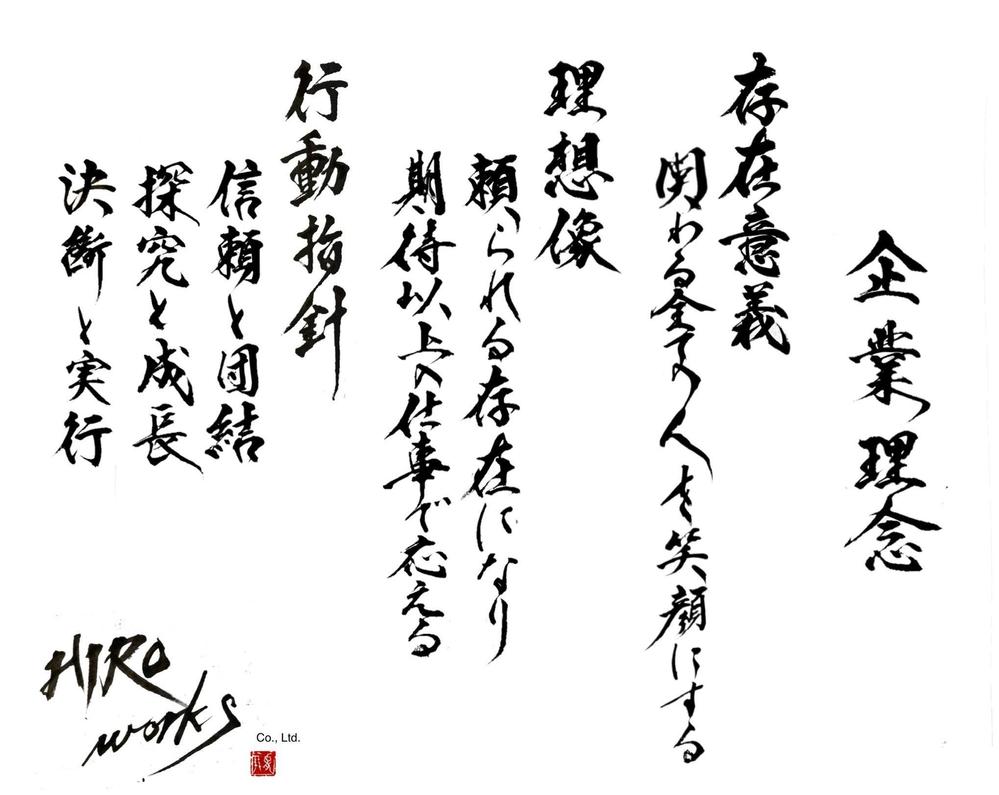 企業理念
存在意義
関わる全ての人を笑顔にする
理想像
頼られる存在になり
期待以上の仕事で応える
行動指針
信頼と団結
探究と成長
決断と実行
HIRO
works
Co., Ltd.